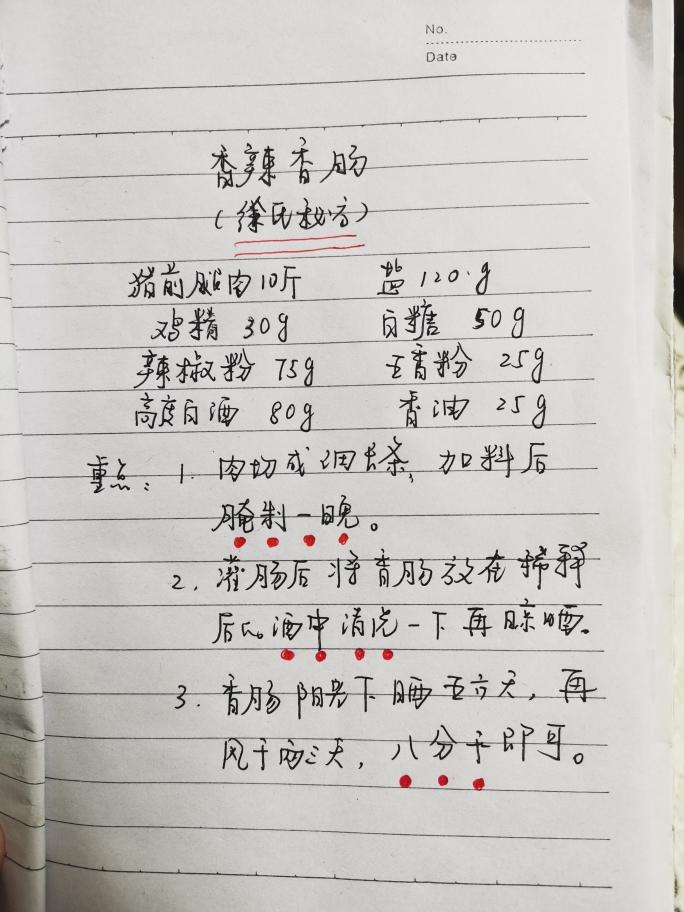 No.
Date
香辣香肠
(徐氏秘方)
猪前腿肉10斤 盐 120g
鸡精 30g 白糖 50g
辣椒粉 75g 五香粉 25g
高度白酒 80g 香油 25g
重点: 1. 肉切成细长条, 加料后
腌制一晚。
2. 灌肠后将香肠放在稀释
后的酒中清洗一下再晾晒。
3. 香肠阳光下晒五六天, 再
风干两三天, 八分干即可。